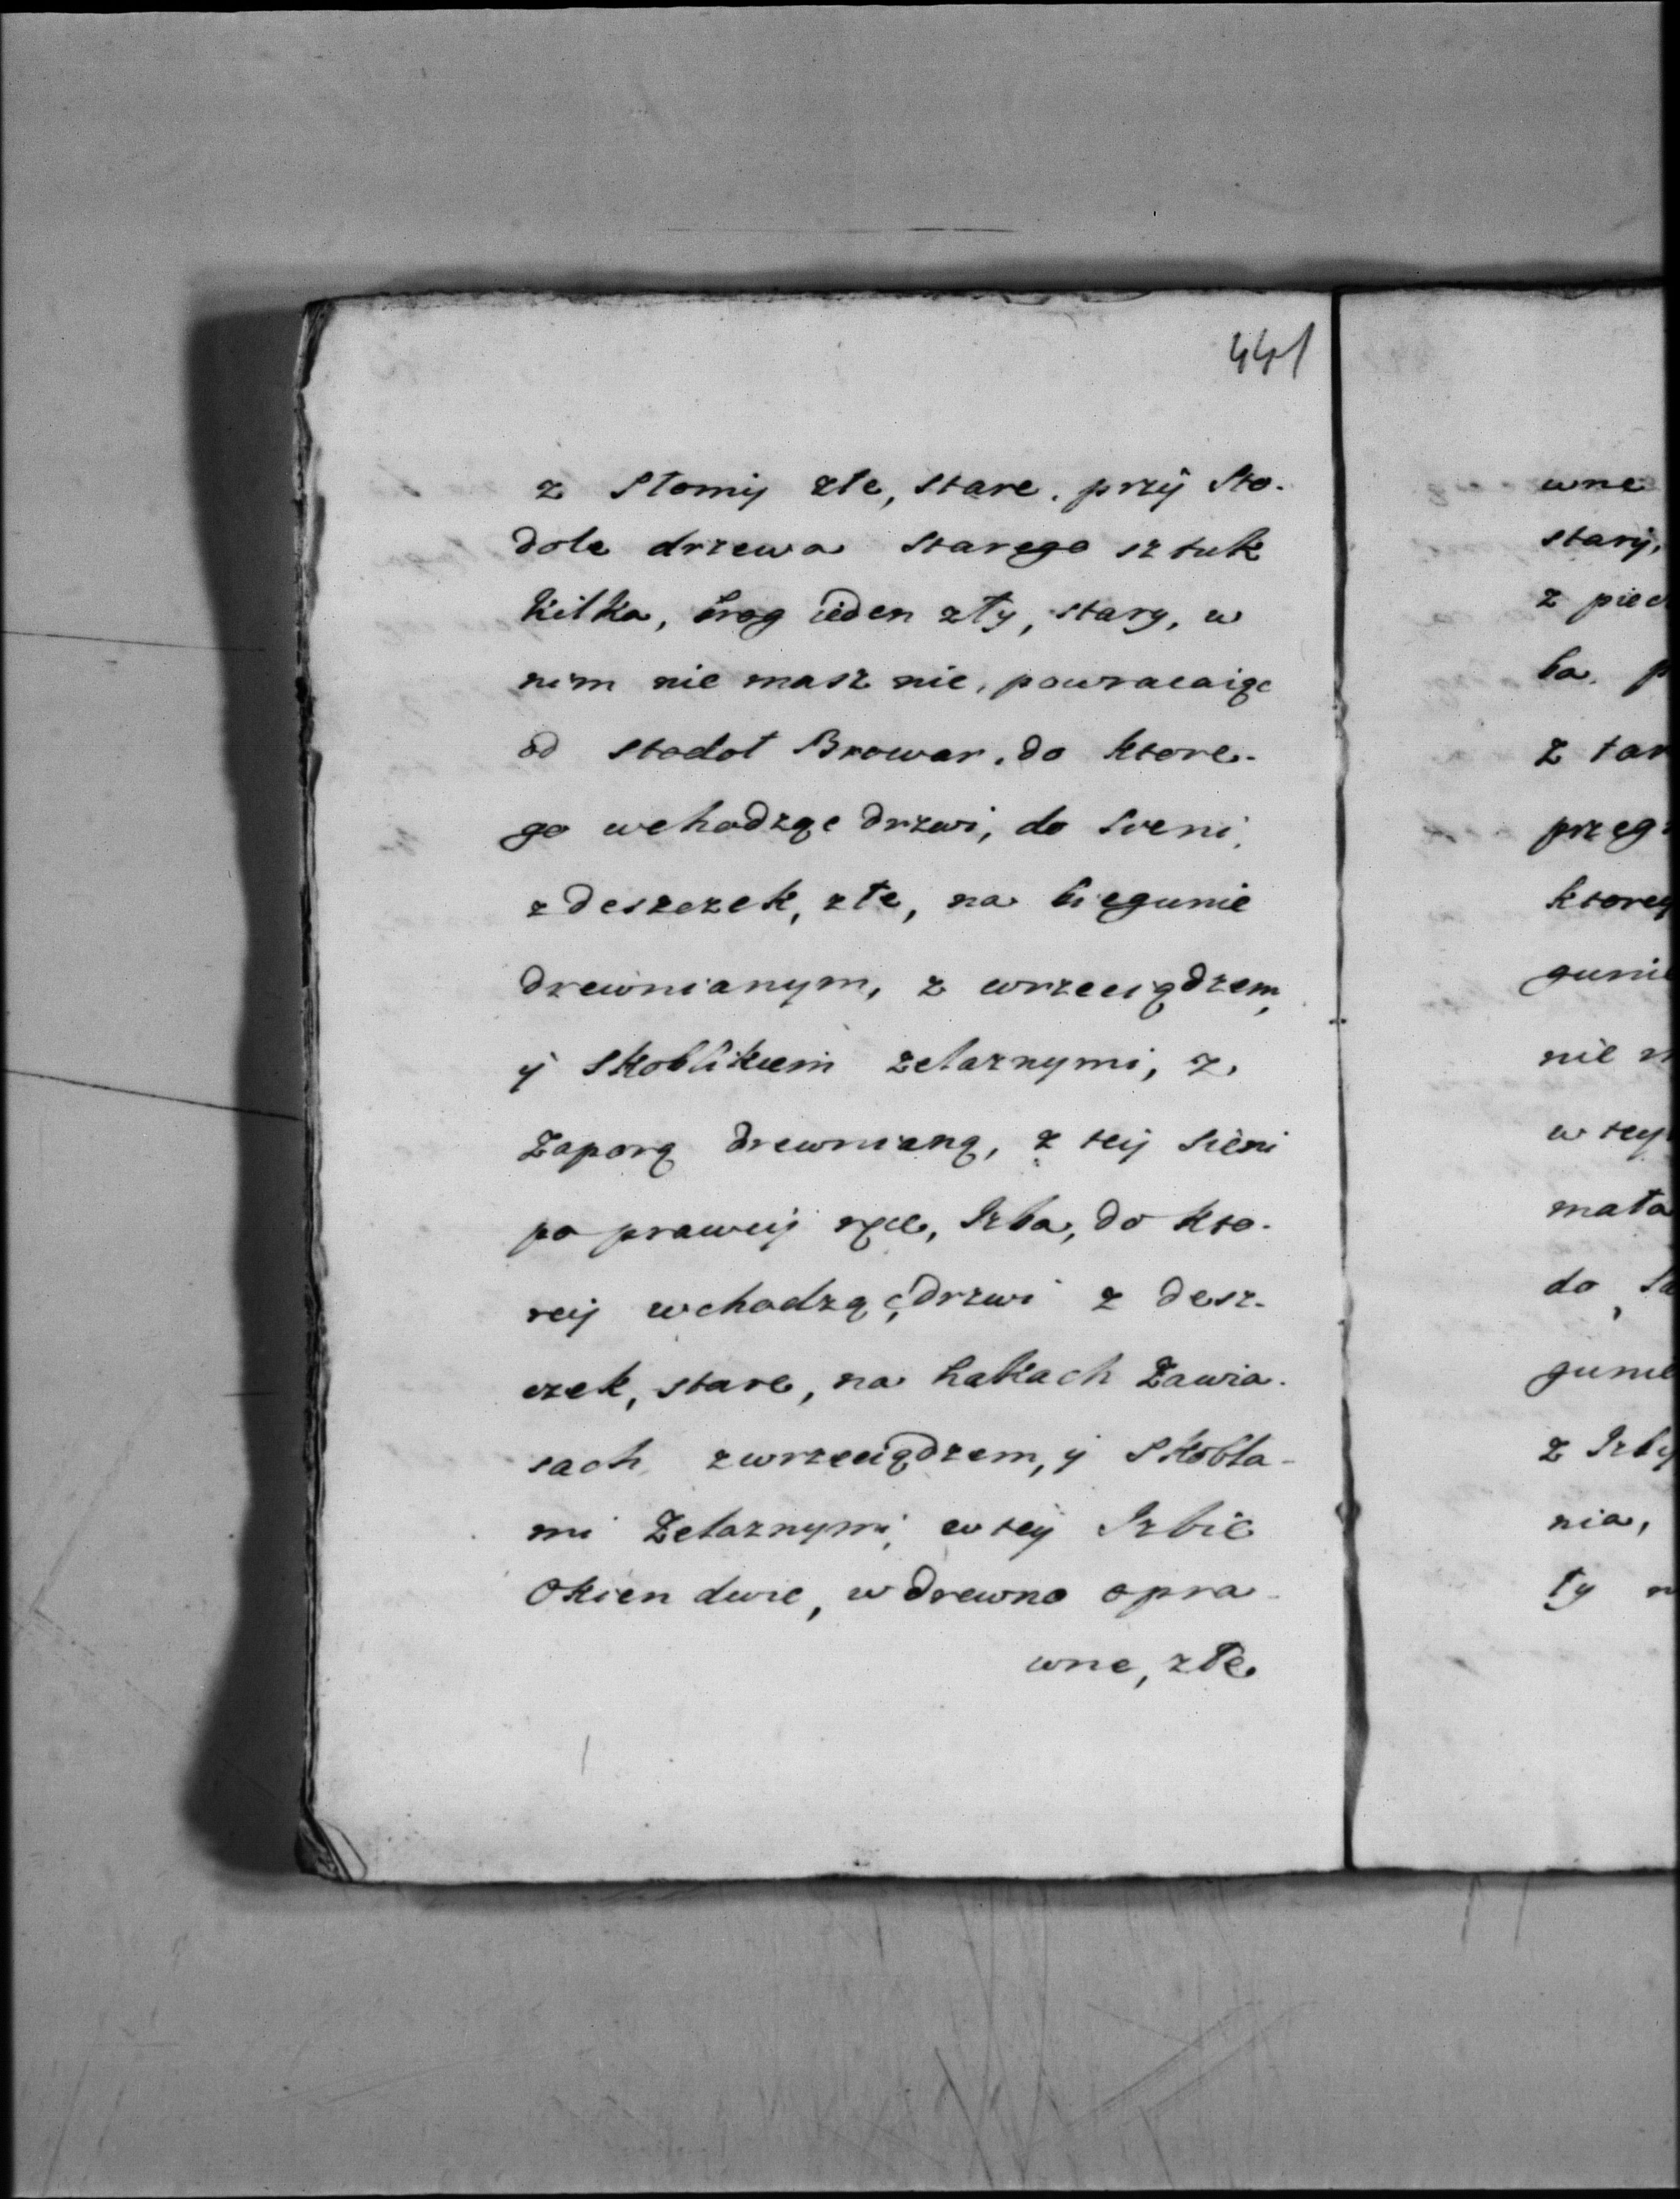 441
z Słomÿ złe, stare. przÿ Sto-
dole drzewa starego sztuk
kilka, brog ieden zły, stary, w
nim nie masz nic, powracaiąc
od stodoł Browar, do ktore-
go wchodząc drzwi, do sieni,
z deszczek, złe, na biegunie
drewnianym, z wrzeciądzem,
ÿ skoblikiem żelaznymi, z
Zaporą drewnianą, z teÿ sieni
po praweÿ ręce, Izba, do kto-
reÿ wchodząc, drzwi z desz-
czek, stare, na hakach Zawia-
sach z wrzeciądzem, ÿ Skobla-
mi Żelaznymi, w teÿ Izbie
Okien dwie, w drewno opra-
wne, złe
wne
starÿ,
z piec
ba. p
z tar
przeg
ktoreÿ
gunie
nie m
w teÿ
mała
do
gunie
z Izbÿ
nia,
ty n